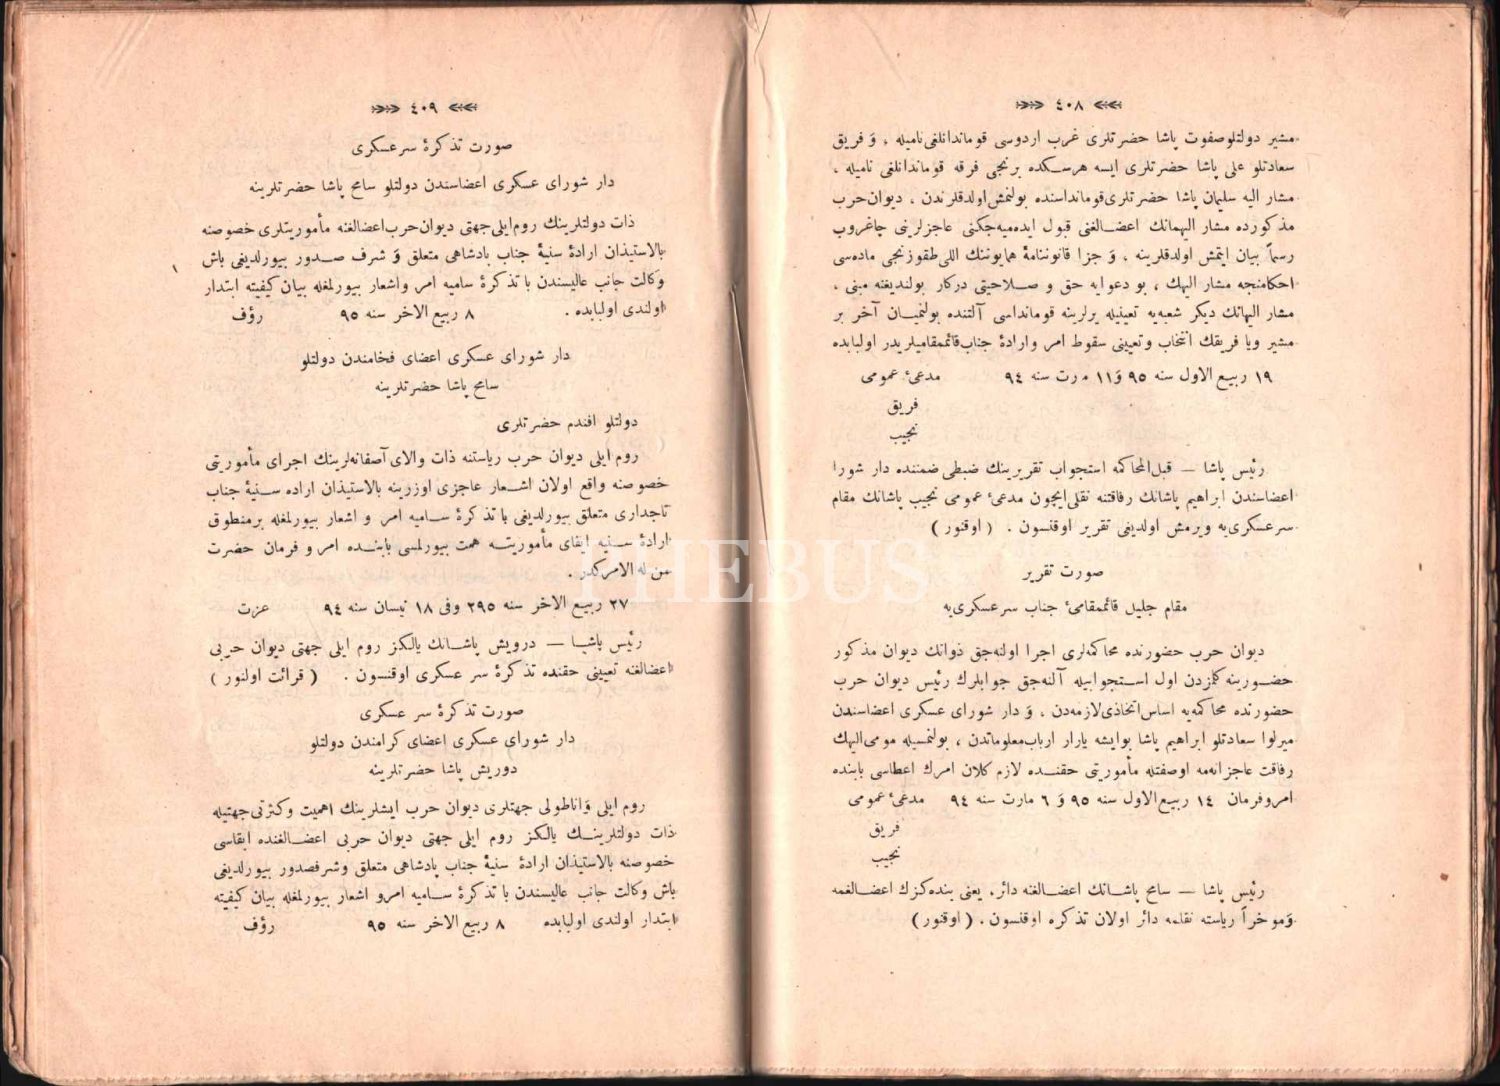 ٤٠٨
مشير دولتلو صفوت پاشا حضرتلری غرب اردوسی قوماندانلغی نامیله ، وَ فریق
سعادتلو علی پاشا حضرتلری ایسه هرسکده برنجی فرقه قوماندانلغی نامیله ،
مشار الیه سلیمان پاشا حضرتلری قومانداسنده بولنمش اولدقلرندن ، دیوان حرب
مذکورده مشار الیهمانك اعضالغنی قبول ایده‌میه‌جکنی عاجزلرینی چاغروب
رسماً بیان ایتمش اولدقلرینه ، وَ جزا قانوننامهٔ همایوننك اللی طقوزنجی ماده‌سی
احکامنجه مشار الیهك ، بو دعوایه حق و صلاحیتی درکار بولندیغنه مبنی ،
مشار الیهانك دیکر شعبه‌یه تعیینیله یرلرینه قومانداسی آلتنده بولنمیان آخر بر
مشیر ویا فریقك انتخاب وتعیینی سقوط امر و ارادهٔ جناب قائممقامیلریدر اولبابده
١٩ ربیع الاول سنه ٩٥ وَ ١١ مارت سنه ٩٤ مدعیٔ عمومی
فریق
نجیب
رئیس پاشا — قبل المحاکمه استجواب تقریرینك ضبطی ضمننده دار شورا
اعضاسندن ابراهیم پاشانك رفاقتنه نقلی ایچون مدعیٔ عمومی نجیب پاشانك مقام
سرعسکری‌یه ویرمش اولدیغی تقریر اوقنسون . ( اوقنور )
صورت تقریر
مقام جلیل قائممقامیٔ جناب سرعسکری‌یه
دیوان حرب حضورنده محاکمه‌لری اجرا اولنه‌جق ذواتك دیوان مذکور
حضورینه کلمزدن اول استجوابیله آلنه‌جق جوابلرك رئیس دیوان حرب
حضورنده محاکمه‌یه اساس اتخاذی لازمه‌دن ، وَ دار شورای عسکری اعضاسندن
میرلوا سعادتلو ابراهیم پاشا بوایشه یارار ارباب معلوماتدن ، بولنمسیله مومی الیهك
رفاقت عاجزانه‌مه اوصفتله مأموریتی حقنده لازم کلان امرك اعطاسی بابنده
امروفرمان ١٤ ربیع الاول سنه ٩٥ و ٦ مارت سنه ٩٤ مدعیٔ عمومی
فریق
نجیب
رئیس پاشا — سامح پاشانك اعضالغنه دائر، یعنی بنده‌کزك اعضالغمه
وَمؤخراً ریاسته نقلمه دائر اولان تذکره اوقنسون . ( اوقنور )
٤٠٩
صورت تذکرهٔ سرعسکری
دار شورای عسکری اعضاسندن دولتلو سامح پاشا حضرتلرینه
ذات دولتلرینك روم ایلی جهتی دیوان حرب اعضالغنه مأموریتلری خصوصنه
بالاستیذان ارادهٔ سنیهٔ جناب پادشاهی متعلق وَ شرف صدور بیورلدیغی باش
وکالت جانب عالیسندن با تذکرهٔ سامیه امر واشعار بیورلمغله بیان کیفیته ابتدار
اولندی اولبابده . ٨ ربیع الاخر سنه ٩٥ رؤف
دار شورای عسکری اعضای فخامندن دولتلو
سامح پاشا حضرتلرینه
دولتلو افندم حضرتلری
روم ایلی دیوان حرب ریاستنه ذات والای آصفانه‌لرینك اجرای مأموریتی
خصوصنه واقع اولان اشعار عاجزی اوزرینه بالاستیذان اراده سنیهٔ جناب
تاجداری متعلق بیورلدیغی با تذکرهٔ سامیه امر و اشعار بیورلمغله برمنطوق
ارادهٔ سنیه ایفای مأموریته همت بیورلمسی بابنده امر و فرمان حضرت
من له الامرکدر .
THEBUS
٢٧ ربیع الاخر سنه ٢٩٥ وفی ١٨ نیسان سنه ٩٤ عزت
رئیس پاشا — درویش پاشانك یالکز روم ایلی جهتی دیوان حربی
اعضالغنه تعیینی حقنده تذکرهٔ سر عسکری اوقنسون . ( قرائت اولنور )
صورت تذکرهٔ سر عسکری
دار شورای عسکری اعضای کرامندن دولتلو
دوریش پاشا حضرتلرینه
روم ایلی وَاناطولی جهتلری دیوان حرب ایشلرینك اهمیت وکثرتی جهتیله
ذات دولتلرینك یالکز روم ایلی جهتی دیوان حربی اعضالغنده ابقاسی
خصوصنه بالاستیذان ارادهٔ سنیهٔ جناب پادشاهی متعلق وشرفصدور بیورلدیغی
باش وکالت جانب عالیسندن با تذکرهٔ سامیه امرو اشعار بیورلمغله بیان کیفیته
ابتدار اولندی اولبابده ٨ ربیع الاخر سنه ٩٥ رؤف